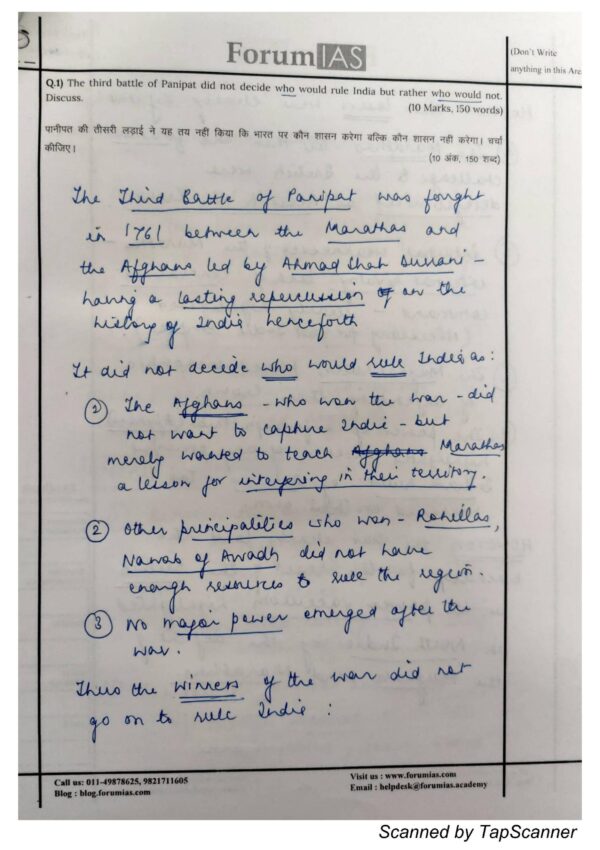 ForumIAS
(Don't Write
anything in this Are
Q.1) The third battle of Panipat did not decide who would rule India but rather who would not.
Discuss.
(10 Marks, 150 words)
पानीपत की तीसरी लड़ाई ने यह तय नहीं किया कि भारत पर कौन शासन करेगा बल्कि कौन शासन नहीं करेगा। चर्चा
कीजिए।
(10 अंक, 150 शब्द)
The Third Battle of Panipat was fought
in 1761 between the Marathas and
the Afghans led by Ahmad Shah Durrani -
having a lasting repercussion on the
history of India henceforth
It did not decide who would rule India as:
1) The Afghans - who won the war - did
not want to capture India - but
merely wanted to teach Afghans Marathas
a lesson for interfering in their territory.
2) Other principalities who won - Rohellas,
Nawab of Awadh did not have
enough resources to rule the region.
3) No major power emerged after the
war.
Thus the winners of the war did not
go on to rule India :
Call us: 011-49878625, 9821711605
Blog : blog.forumias.com
Visit us : www.forumias.com
Email : helpdesk@forumias.academy
Scanned by TapScanner